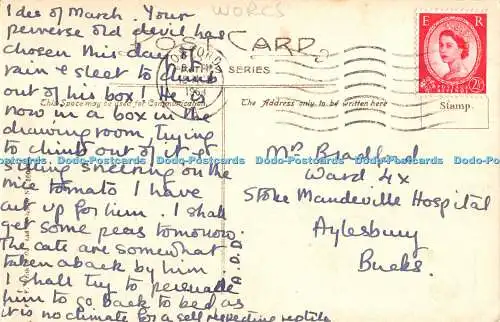 Ides of March. Your
perverse old devil has
chosen this day of
rain & sleet to climb
out of his box! He is
now in a box in the
drawing room, trying
to climb out of it &
sitting sneering on the
nice tomato I have
cut up for him. I shall
get some peas tomorrow.
The cats are somewhat
taken aback by him
I shall try to persuade
him to go back to bed as
it is no climate for a self respecting reptile
WORCS
POST CARD
SERIES
This Space may be used for Communication
The Address only to be written here
E R
POSTAGE REVENUE
2½D
Stamp.
1964
Mrs Bradford
Ward 4x
Stoke Mandeville Hospital
Aylesbury
Bucks.
Dodo-Postcards Dodo-Postcards Dodo-Postcards Dodo-Postcards Dodo-Postcards Dodo-Postcards